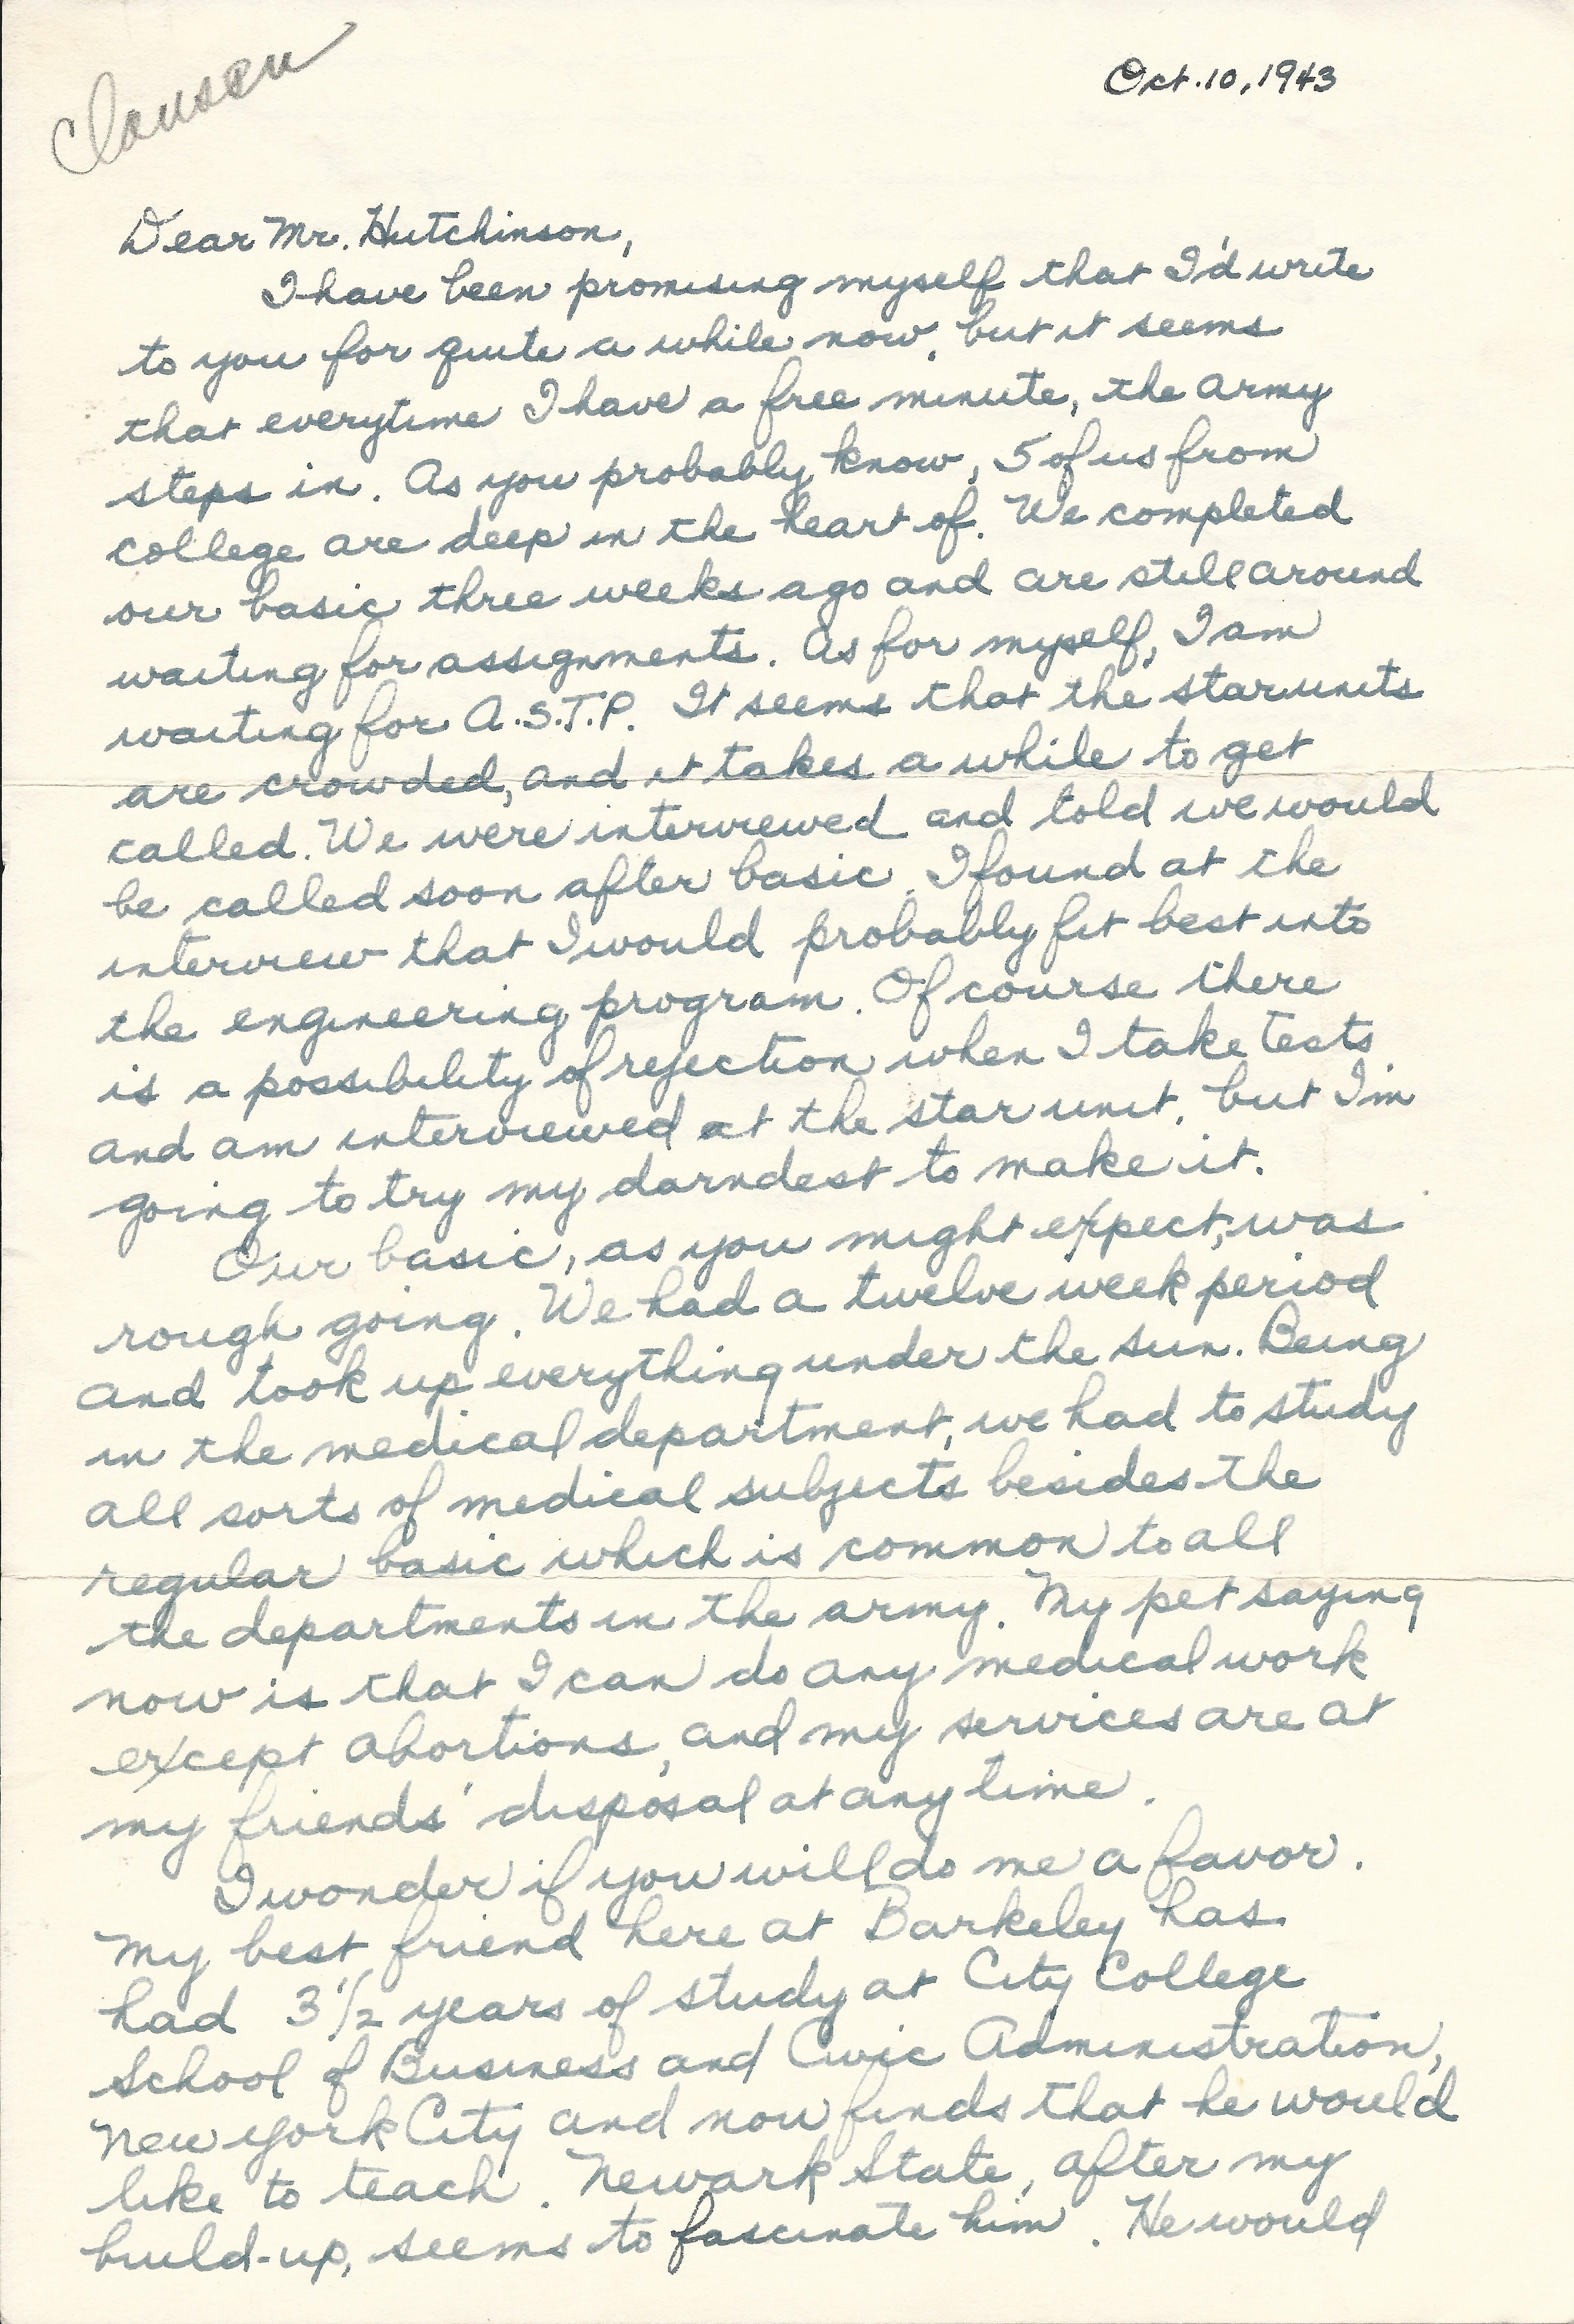 Clausen
Oct. 10, 1943
Dear Mr. Hutchinson,
I have been promising myself that I'd write
to you for quite a while now, but it seems
that everytime I have a free minute, the army
steps in. As you probably know, 5 of us from
college are deep in the heart of. We completed
our basic three weeks ago and are still around
waiting for assignments. As for myself, I am
waiting for A.S.T.P. It seems that the star units
are crowded, and it takes a while to get
called. We were interviewed and told we would
be called soon after basic. I found at the
interview that I would probably fit best into
the engineering program. Of course there
is a possibility of rejection when I take tests
and am interviewed at the star unit, but I'm
going to try my darndest to make it.
Our basic, as you might expect, was
rough going. We had a twelve week period
and took up everything under the sun. Being
in the medical department, we had to study
all sorts of medical subjects besides the
regular basic which is common to all
the departments in the army. My pet saying
now is that I can do any medical work
except abortions, and my services are at
my friends' disposal at any time.
I wonder if you will do me a favor.
My best friend here at Barkeley has
had 3 1/2 years of study at City College
School of Business and Civic Administration,
New York City and now finds that he would
like to teach. Newark State, after my
build-up, seems to fascinate him. He would